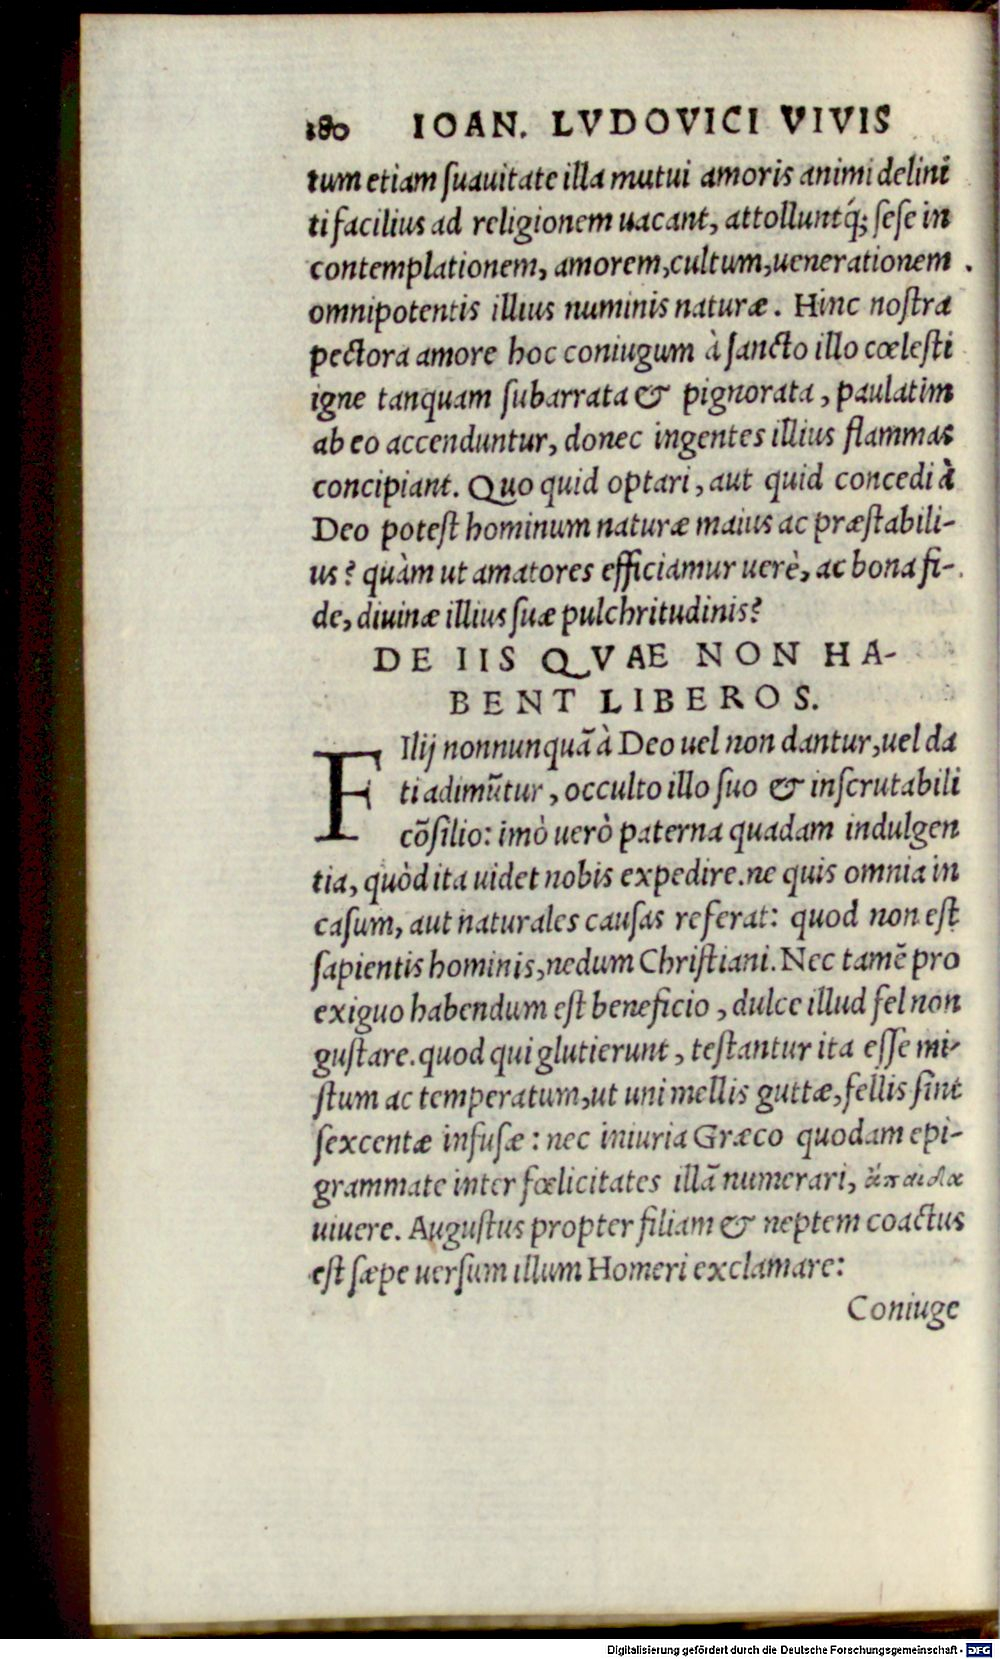 180 IOAN. LVDOVICI VIVIS
tum etiam ſuauitate illa mutui amoris animi delini
ti facilius ad religionem uacant, attolluntq́; ſeſe in
contemplationem, amorem, cultum, uenerationem
omnipotentis illius numinis naturæ. Hinc noſtra
pectora amore hoc coniugum à ſancto illo cœleſti
igne tanquam ſubarrata & pignorata, paulatim
ab eo accenduntur, donec ingentes illius flammas
concipiant. Quo quid optari, aut quid concedi à
Deo poteſt hominum naturæ maius ac præſtabili-
us? quàm ut amatores efficiamur uerè, ac bona fi-
de, diuinæ illius ſuæ pulchritudinis?
DE IIS QVAE NON HA-
BENT LIBEROS.
FIlij nonnunquã à Deo uel non dantur, uel da
ti adimũtur, occulto illo ſuo & inſcrutabili
cõſilio: imò uerò paterna quadam indulgen
tia, quòd ita uidet nobis expedire. ne quis omnia in
caſum, aut naturales cauſas referat: quod non eſt
ſapientis hominis, nedum Chriſtiani. Nec tamẽ pro
exiguo habendum eſt beneficio, dulce illud fel non
guſtare. quod qui glutierunt, teſtantur ita eſſe mi-
ſtum ac temperatum, ut uni mellis guttæ, fellis ſint
ſexcentæ infuſæ: nec iniuria Græco quodam epi-
grammate inter fœlicitates illã numerari, ἄπαιδα
uiuere. Auguſtus propter filiam & neptem coactus
eſt ſæpe uerſum illum Homeri exclamare:
Coniuge
Digitalisierung gefördert durch die Deutsche Forschungsgemeinschaft - DFG